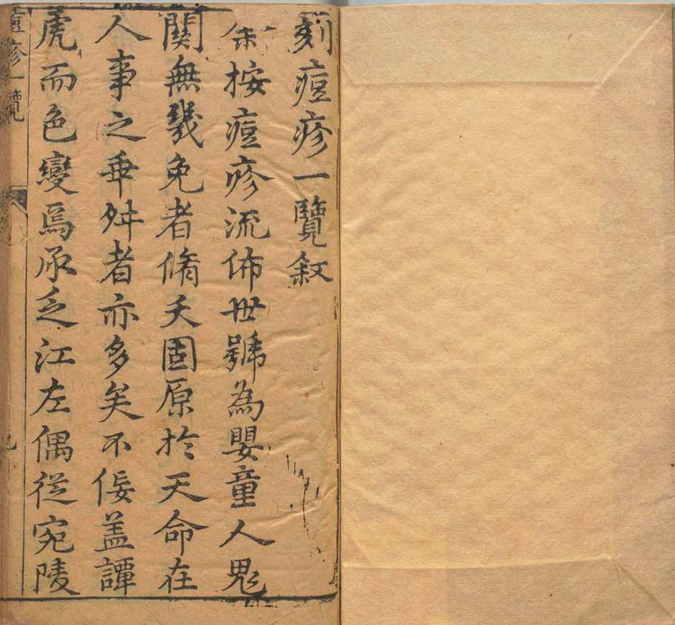 刻痘疹一覽敘
余按痘疹流佈世號為嬰童人鬼
關無幾免者脩夭固原於天命在
人事之乖舛者亦多矣不佞蓋譚
虎而色變焉承乏江左偶從宛陵
痘疹一覽